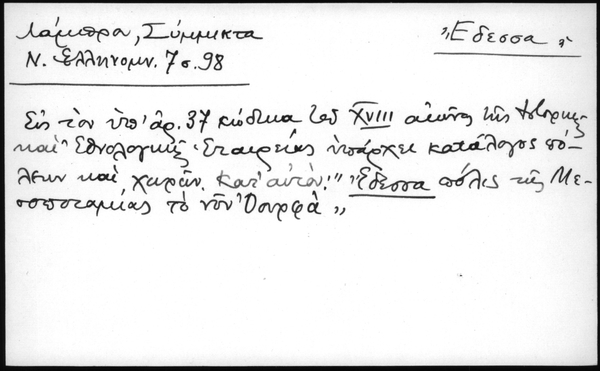 Λάμπρου, Σύμμικτα
„Έδεσσα„
Ν. Ελληνομν. 7 σ. 98
Εις τον υπ' αρ. 37 κώδικα του XVIII αιώνος της Ιστορικής
και Εθνολογικής Εταιρείας υπάρχει κατάλογος πό-
λεων και χωρών. Κατ' αυτόν: "Έδεσσα πόλις της Με-
σοποταμίας το νυν Ουρφά„